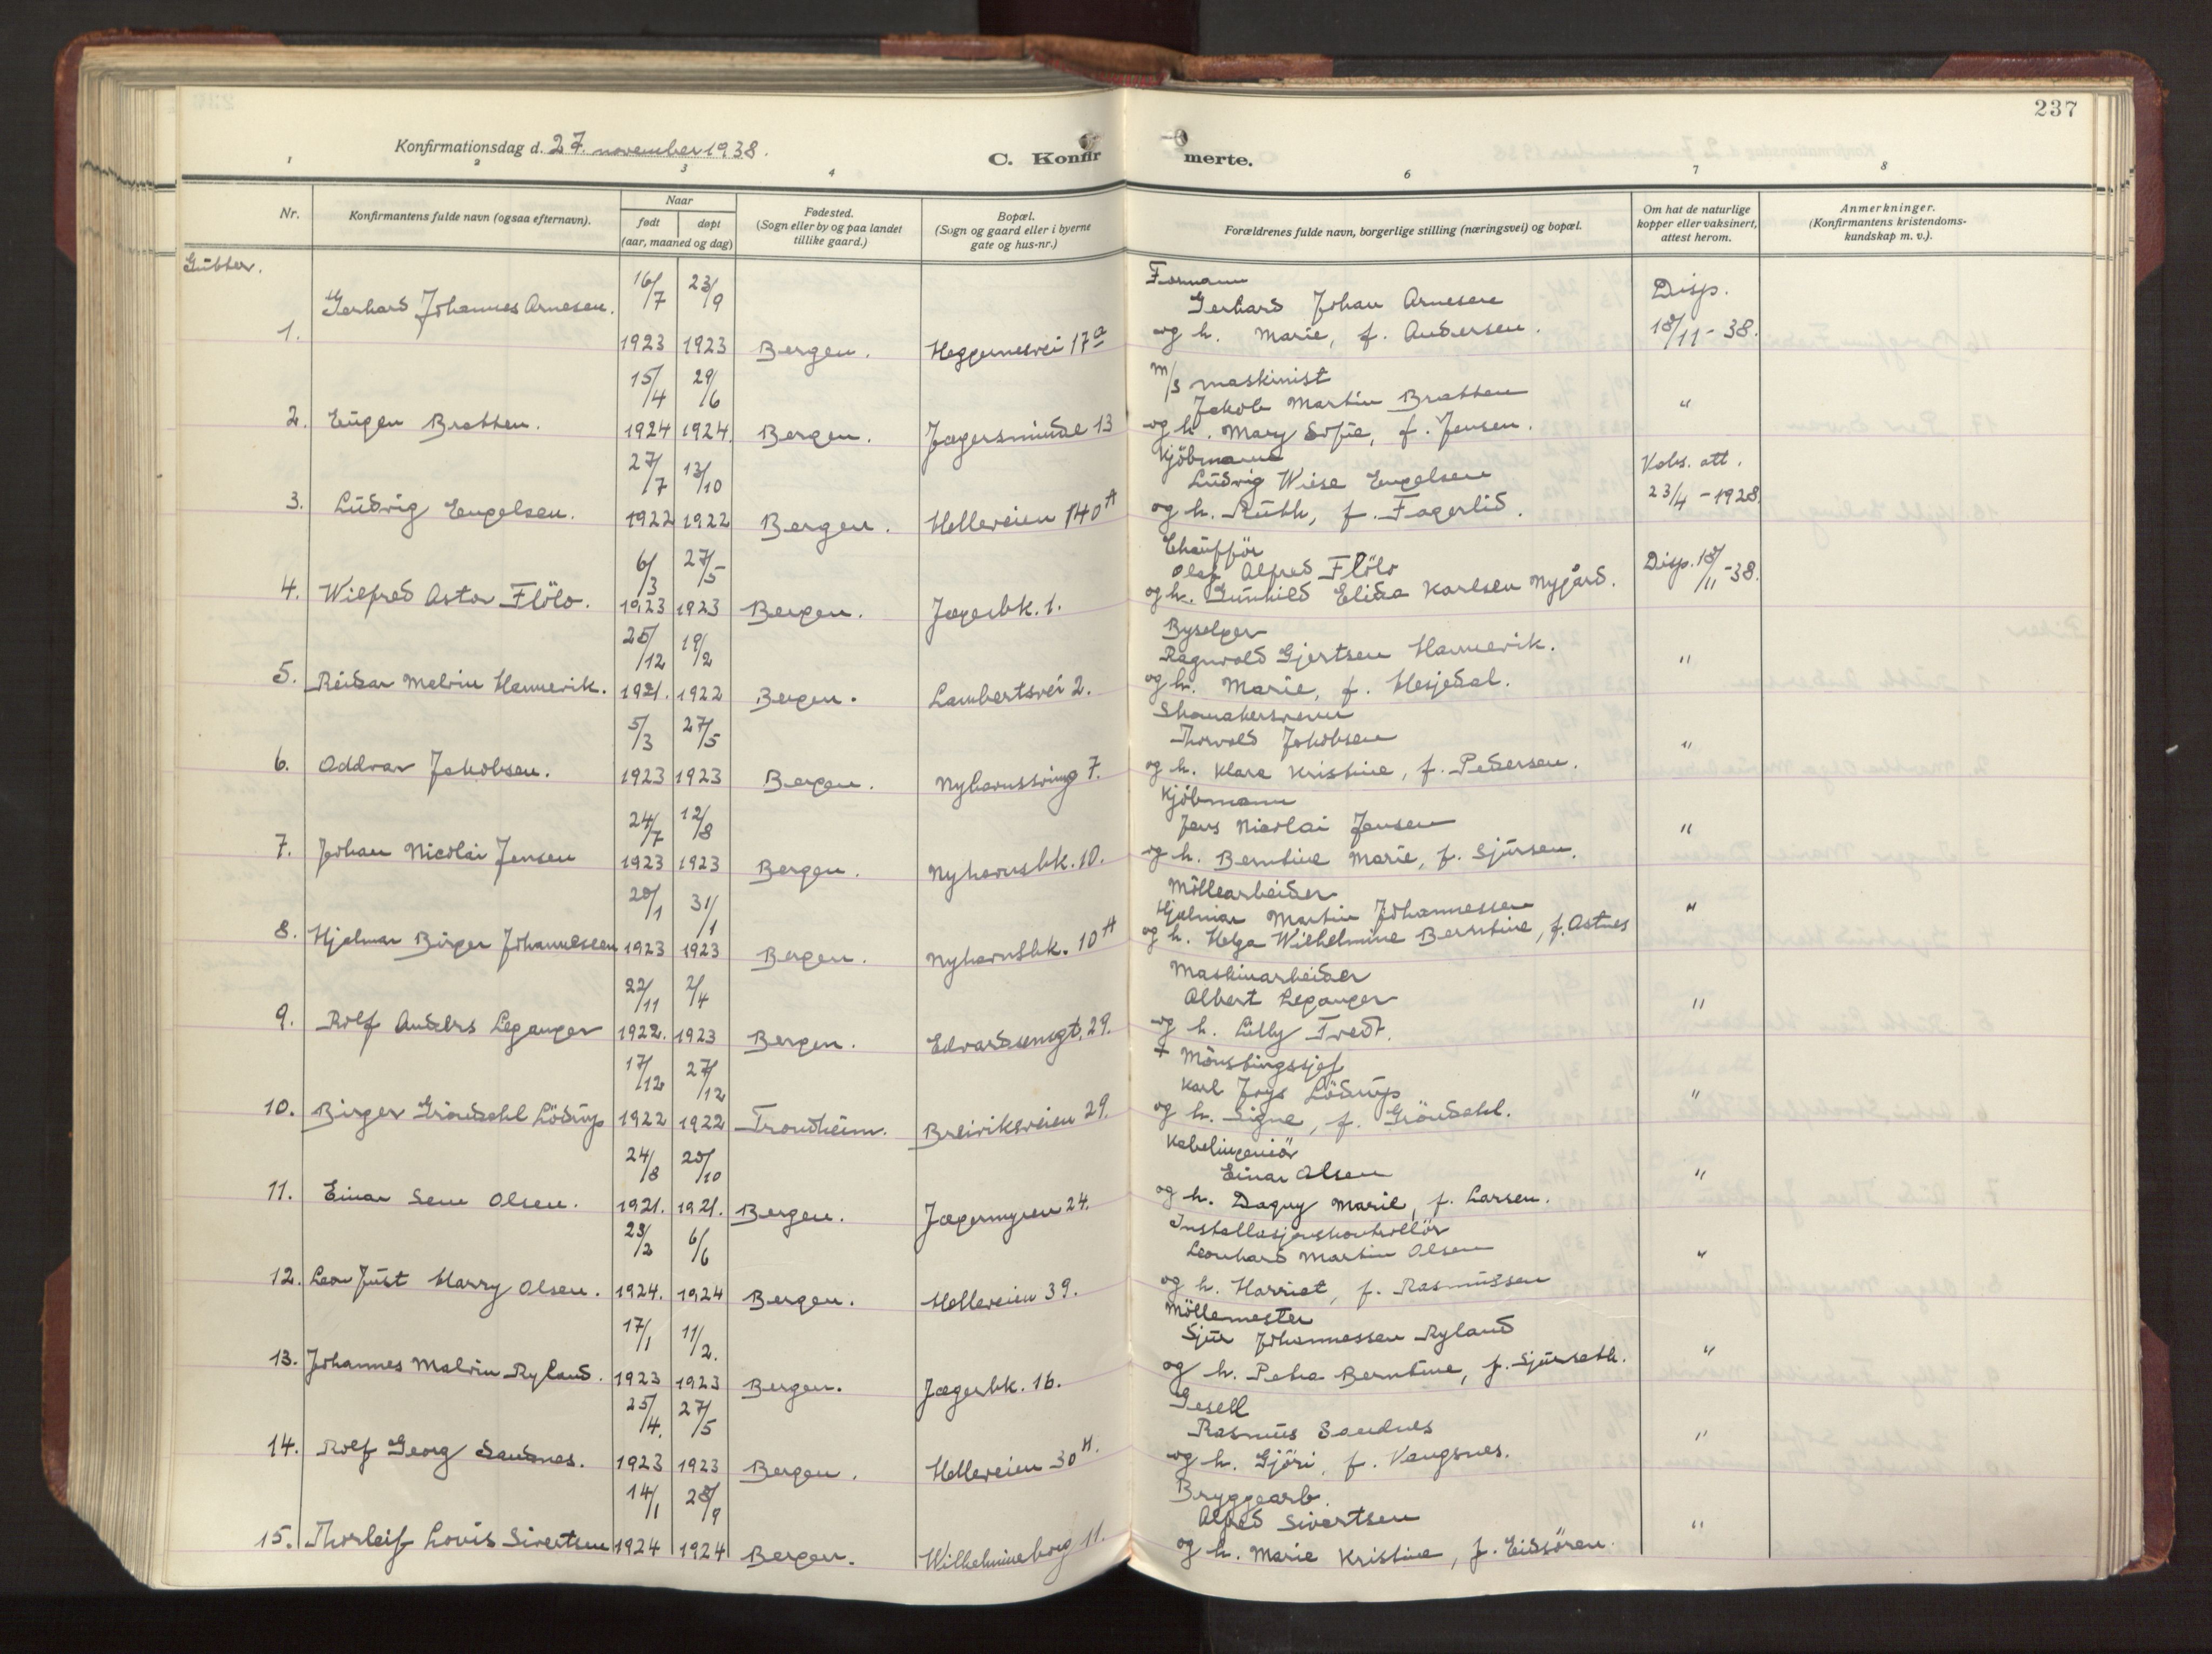 237
Konfirmationsdag d. 27. november 1938.
C. Konfirmerte.
1 2 3 4 6 7 8
Nr.
Konfirmantens fulde navn (ogsaa efternavn).
Naar
født døpt
(aar, maaned og dag)
Fødested.
(Sogn eller by og paa landet
tillike gaard.)
Bopæl.
(Sogn og gaard eller i byerne
gate og hus-nr.)
Forældrenes fulde navn, borgerlige stilling (næringsvei) og bopæl.
Om hat de naturlige
kopper eller vaksinert,
attest herom.
Anmerkninger.
(Konfirmantens kristendoms-
kundskap m. v.).
Gutter.
16/7 23/9 Formann
Gerhard Johannes Arnesen. Gerhard Johan Arnesen Disp.
1. 1923 1923 Bergen. Heggernesvei 17a og h. Marie, f. Andersen. 18/11-38.
15/4 29/6 m/s maskinist
Jakob Martin Bratten "
2. Eugen Bratten. 1924 1924. Bergen. Jægersminde 13 og h. Mary Sofie, f. Jensen.
27/7 13/10 Kjöbmann
Ludvig Wiese Engelsen Vaks. att.
3. Ludvig Engelsen. 1922 1922 Bergen. Helleveien 140A og h. Ruth, f. Fagerlid. 23/4-1928
6/3 27/5 Chaufför
Olaf Alfred Flölo Disp. 18/11-38.
4. Wilfred Astor Flölo. 1923 1923 Bergen. Jægerbk. 1. og h. Gunhild Elida Karlsen Nygård.
25/12 19/2 Byselger
Ragnvald Gjertsen Hammerik. "
5. Reidar Melvin Hammerik. 1921. 1922 Bergen. Lambertsvei 2. og h. Marie, f. Hesjedal.
5/3 27/5 Skomakersvenn
Thorvald Jakobsen "
6. Oddvar Jakobsen. 1923 1923 Bergen. Nyhavnssving 7. og h. Klara Kristine, f. Pedersen.
24/7 12/8 Kjöbmann
Jens Nicolai Jensen "
7. Johan Nicolai Jensen 1923 1923 Bergen. Nyhavnsbk. 10. og h. Berntine Marie, f. Sjursen.
20/1 31/1 Möllearbeider
Hjalmar Martin Johannessen "
8. Hjalmar Birger Johannessen 1923 1923 Bergen. Nyhavnsbk. 10A og h. Helga Wilhelmine Berntine, f. Astnes
22/11 2/4 Maskinarbeider
Albert Leganger "
9. Rolf Anders Leganger 1922. 1923 Bergen. Edvardsensgt. 29. og h. Lilly Tvedt.
17/12 27/12 + Mönstringssjef
Karl Joys Lödrup "
10. Birger Gröndahl Lödrup 1922 1922 Trondheim. Breiviksveien 29. og h. Signe, f. Gröndahl.
24/8 20/10 Kabelingeniör
Einar Olsen "
11. Einar Sem Olsen. 1921. 1921. Bergen. Jægermyren 24. og h. Dagny Marie, f. Larsen.
23/2 6/6 Installasjonskontrollör
Leonhard Martin Olsen "
12. Leon Just Harry Olsen. 1924. 1924 Bergen. Helleveien 39. og h. Harriet, f. Rasmussen
17/1 11/2. Möllemester
Sjur Johannessen Ryland "
13. Johannes Malvin Ryland. 1923 1923 Bergen. Jægerbk. 16. og h. Petra Berntine, f. Sjurseth.
25/4. 27/5 Gesell
Rasmus Sandnes "
14. Rolf Georg Sandnes. 1923 1923 Bergen. Helleveien 30A. og h. Gjöri, f. Vangsnes.
14/1 28/9 Bryggearb.
Alfred Sivertsen "
15. Thorleif Louis Sivertsen 1924 1924 Bergen. Wilhelmineborg 11. og h. Marie Kristine, f. Eidsören.